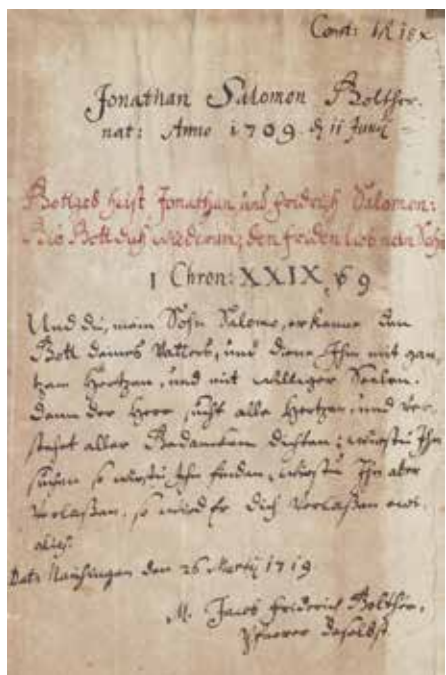 Const: 1 fl 18 x
Jonathan Salomon Bolther.
nat: Anno 1709 d 11 Junij
heist Jonathan, und friderich Salomon:
den friden lieb mein Sohn
I Chron: XXIX, V 9
Und du, mein Sohn Salomo, erkenne den
Gott deines Vatters, und diene Ihm mit gan-
tzem Hertzen, und mit williger Seelen.
Dann der Herr sucht alle Hertzen, und ver-
stehet aller Gedancken dichten; wirstu Ihn
suchen so wirstu Ihn finden, wirstu Ihn aber
verlaßen, so wird Er dich verlaßen ewi-
glich.
Dat: den 26 Martij 1719
M. Jacob friderich Bolther,
Pfarrer daselbst.